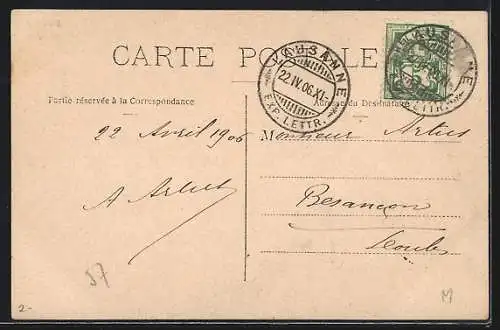 CARTE POSTALE
LAUSANNE
22.IV.06.XI-
EXP. LETTR.
LAUSANNE
LETTR.
Partie réservée à la Correspondance
Adresse du Destinataire
22 Avril 1906
Monsieur Artus
A Artus
Besançon
Doubs
57
2-
M